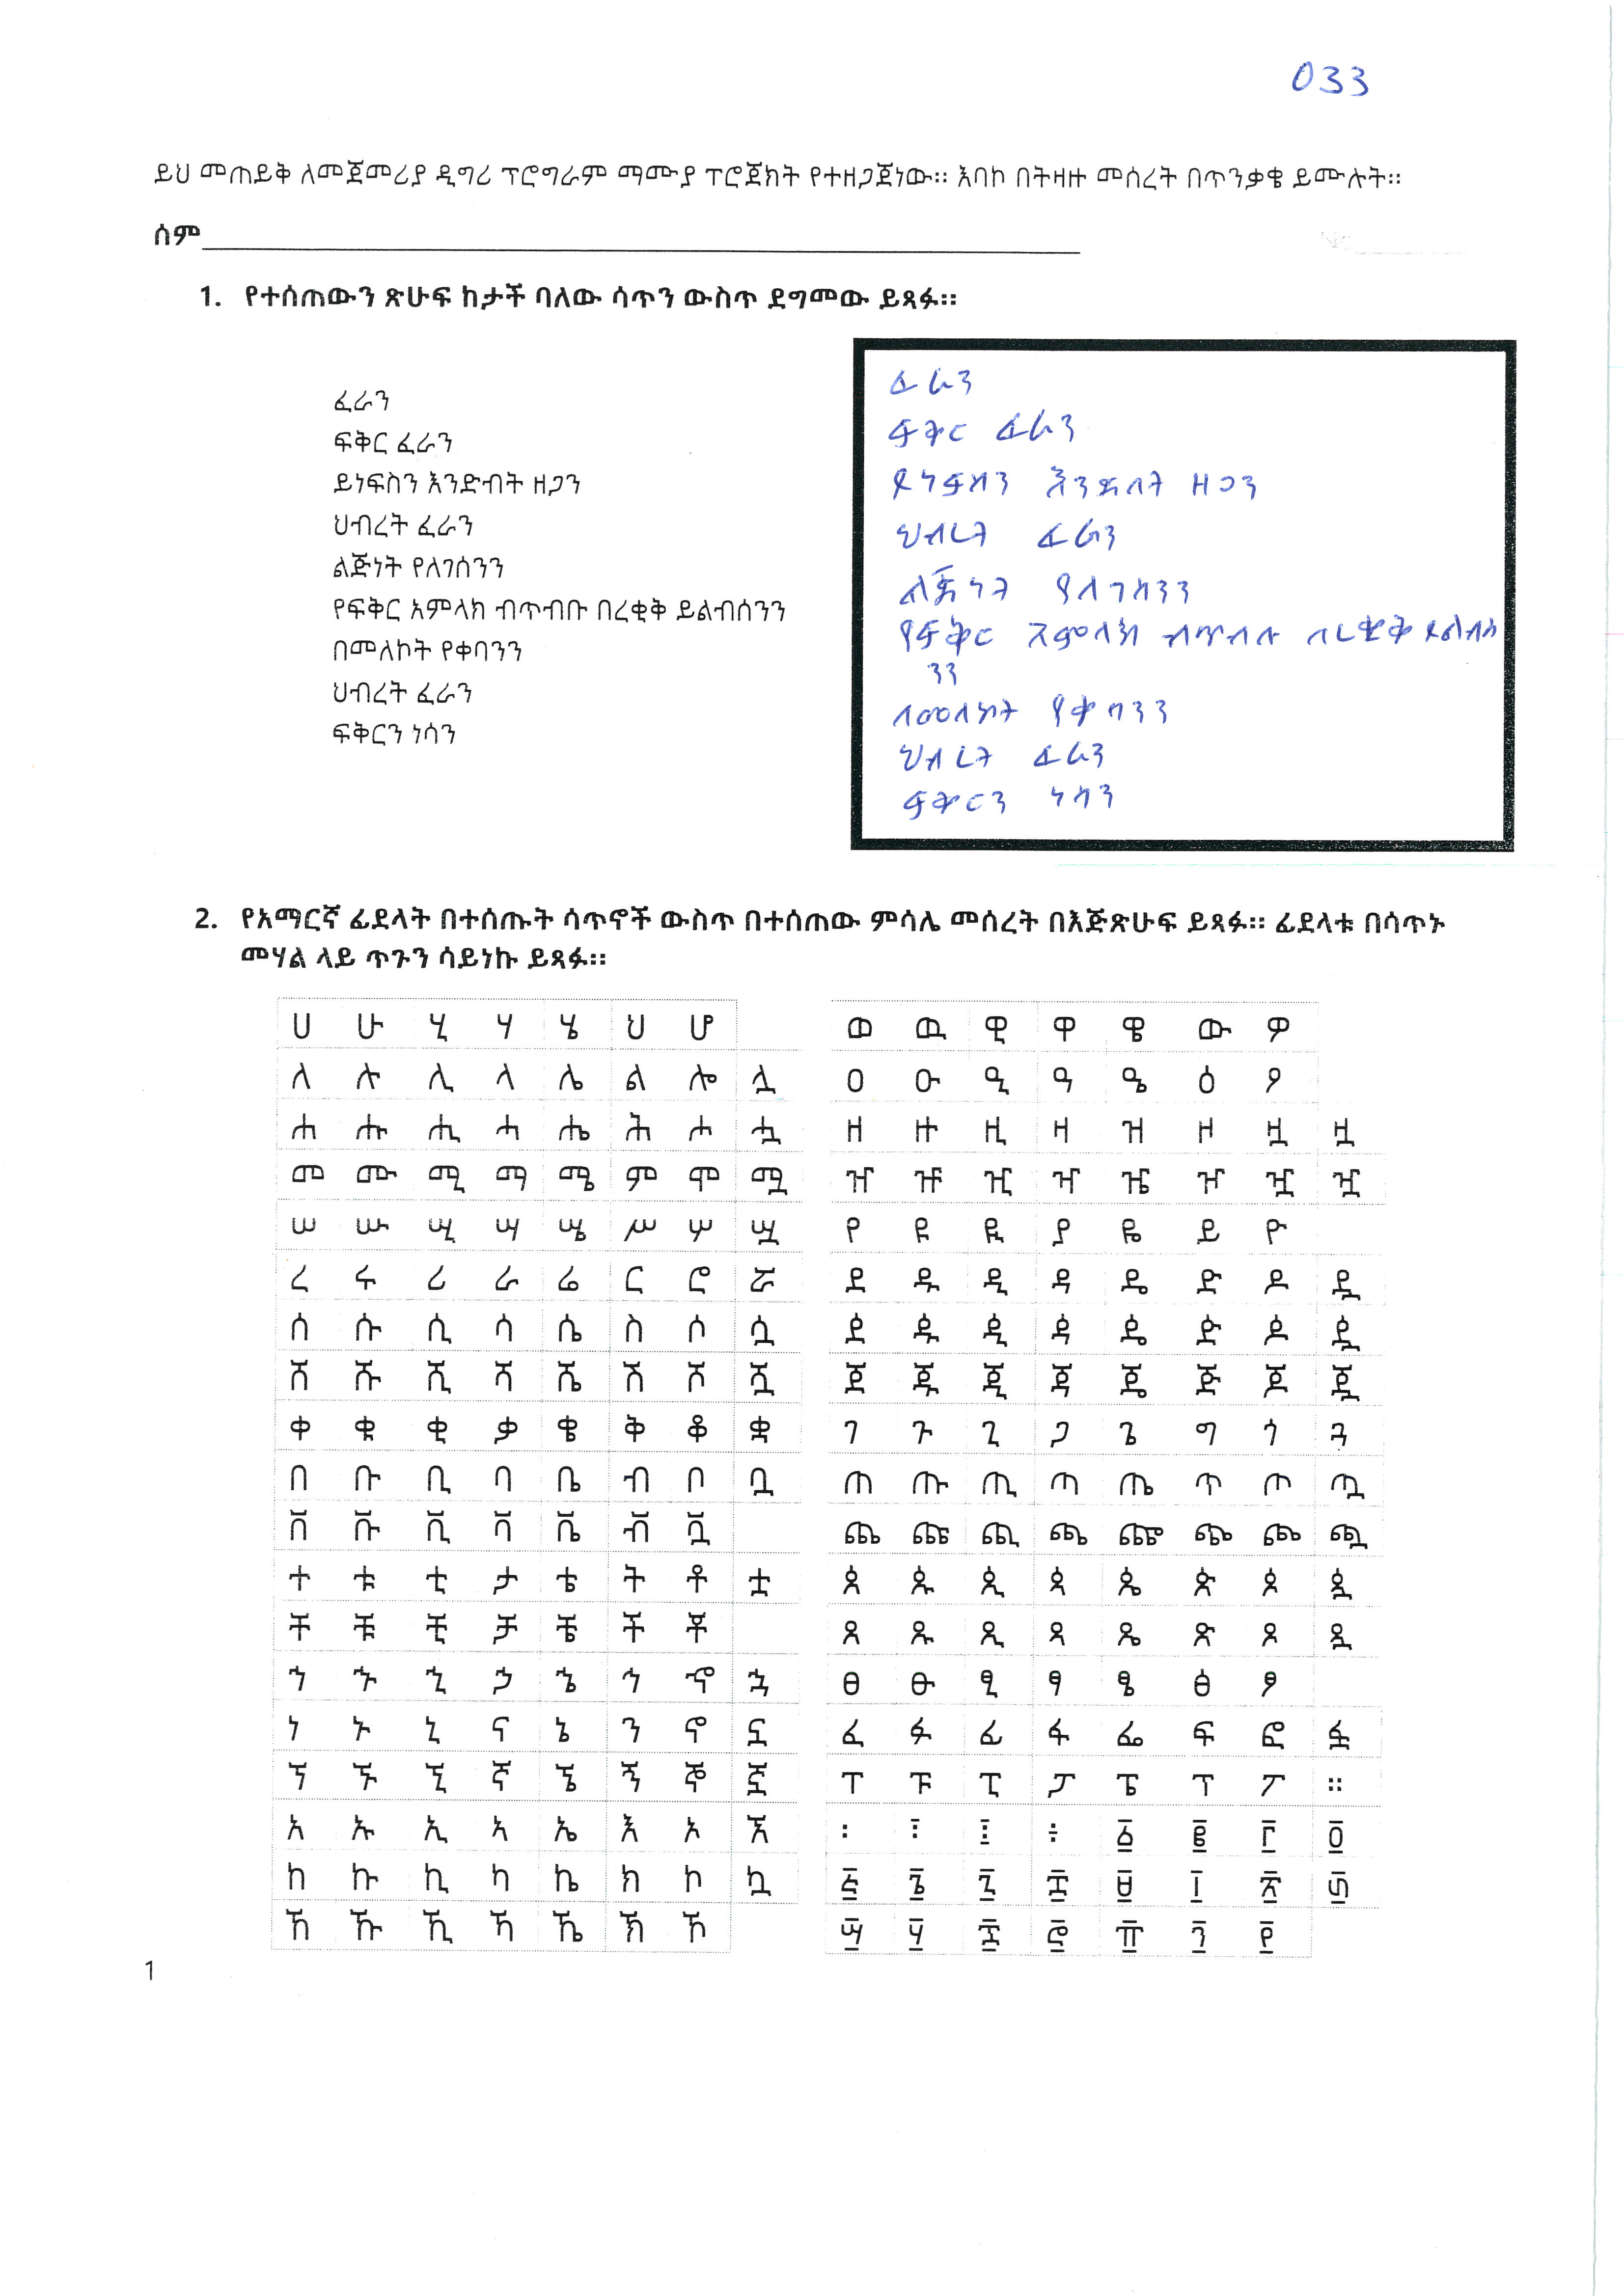 033
ይህ መጠይቅ ለመጀመሪያ ዲግሪ ፕሮግራም ማሙያ ፕሮጀክት የተዘጋጀነው። እባኮ በትዛዙ መሰረት በጥንቃቄ ይሙሉት።
ሰም
1. የተሰጠውን ጽሁፍ ከታች ባለው ሳጥን ውስጥ ደግመው ይጻፉ።
ፈራን
ፍቅር ፈራን
ይነፍስን እንድብት ዘጋን
ህብረት ፈራን
ልጅነት የለገሰንን
የፍቅር አምላክ ብጥብቡ በረቂቅ ይልብሰንን
በመለኮት የቀባንን
ህብረት ፈራን
ፍቅርን ነሳን
ፈራን
ፍቅር ፈራን
ይነፍስን እንድብት ዘጋን
ህብረት ፈራን
ልጅነት የለገሰንን
የፍቅር አምላክ ብጥብቡ በረቂቅ ይልብሰ
ንን
በመለኮት የቀባንን
ህብረት ፈራን
ፍቅርን ነሳን
2. የአማርኛ ፊደላት በተሰጡት ሳጥኖች ውስጥ በተሰጠው ምሳሌ መሰረት በእጅጽሁፍ ይጻፉ። ፊደላቱ በሳጥኑ
መሃል ላይ ጥጉን ሳይነኩ ይጻፉ።
ሀ ሁ ሂ ሃ ሄ ህ ሆ
ለ ሉ ሊ ላ ሌ ል ሎ ሏ
ሐ ሑ ሒ ሓ ሔ ሕ ሖ ሗ
መ ሙ ሚ ማ ሜ ም ሞ ሟ
ሠ ሡ ሢ ሣ ሤ ሥ ሦ ሧ
ረ ሩ ሪ ራ ሬ ር ሮ ሯ
ሰ ሱ ሲ ሳ ሴ ስ ሶ ሷ
ሸ ሹ ሺ ሻ ሼ ሽ ሾ ሿ
ቀ ቁ ቂ ቃ ቄ ቅ ቆ ቋ
በ ቡ ቢ ባ ቤ ብ ቦ ቧ
ቨ ቩ ቪ ቫ ቬ ቭ ቯ
ተ ቱ ቲ ታ ቴ ት ቶ ቷ
ቸ ቹ ቺ ቻ ቼ ች ቾ
ኀ ኁ ኂ ኃ ኄ ኅ ኆ ኋ
ነ ኑ ኒ ና ኔ ን ኖ ኗ
ኘ ኙ ኚ ኛ ኜ ኝ ኞ ኟ
አ ኡ ኢ ኣ ኤ እ ኦ ኧ
ከ ኩ ኪ ካ ኬ ክ ኮ ኳ
ኸ ኹ ኺ ኻ ኼ ኽ ኾ
ወ ዉ ዊ ዋ ዌ ው ዎ
ዐ ዑ ዒ ዓ ዔ ዕ ዖ
ዘ ዙ ዚ ዛ ዝ ዞ ዟ ዟ
ዠ ዡ ዢ ዣ ዤ ዦ ዧ ዧ
የ ዩ ዪ ያ ዬ ይ ዮ
ደ ዱ ዲ ዳ ዴ ድ ዶ ዷ
ዸ ዹ ዺ ዻ ዼ ዽ ዾ ዿ
ጀ ጁ ጂ ጃ ጄ ጅ ጆ ጇ
ገ ጉ ጊ ጋ ጌ ግ ጎ ጓ
ጠ ጡ ጢ ጣ ጤ ጥ ጦ ጧ
ጨ ጩ ጪ ጫ ጬ ጭ ጮ ጯ
ጰ ጱ ጲ ጳ ጴ ጵ ጶ ጷ
ጸ ጹ ጺ ጻ ጼ ጽ ጾ ጿ
ፀ ፁ ፂ ፃ ፄ ፅ ፆ
ፈ ፉ ፊ ፋ ፌ ፍ ፎ ፏ
ፐ ፑ ፒ ፓ ፔ ፕ ፖ ።
፡ ፧ ፤ ፥ ፩ ፪ ፫ ፬
፭ ፮ ፯ ፰ ፱ ፲ ፳ ፴
፵ ፶ ፷ ፸ ፹ ፺ ፻
1